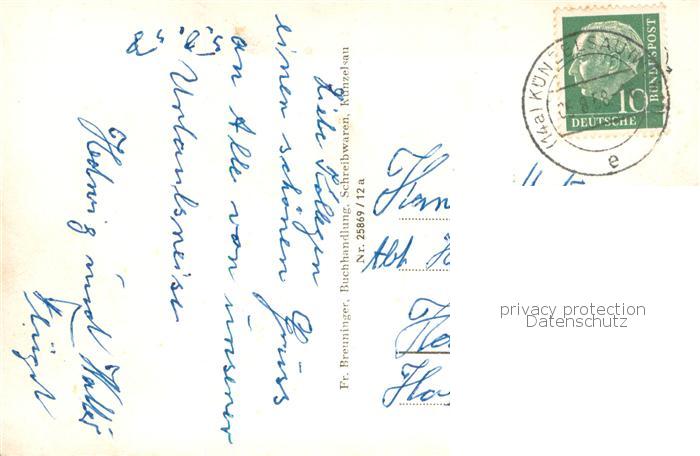 Liebe Kollegen
einen schönen Gruss
an Alle von unserer
Urlaubsreise
Hedwig und Walter
Fr. Breuninger, Buchhandlung, Schreibwaren, Künzelsau
Nr. 25869/12 a
Abt
(14a) KÜNZELSAU
e
10
DEUTSCHE
BUNDESPOST
privacy protection
Datenschutz